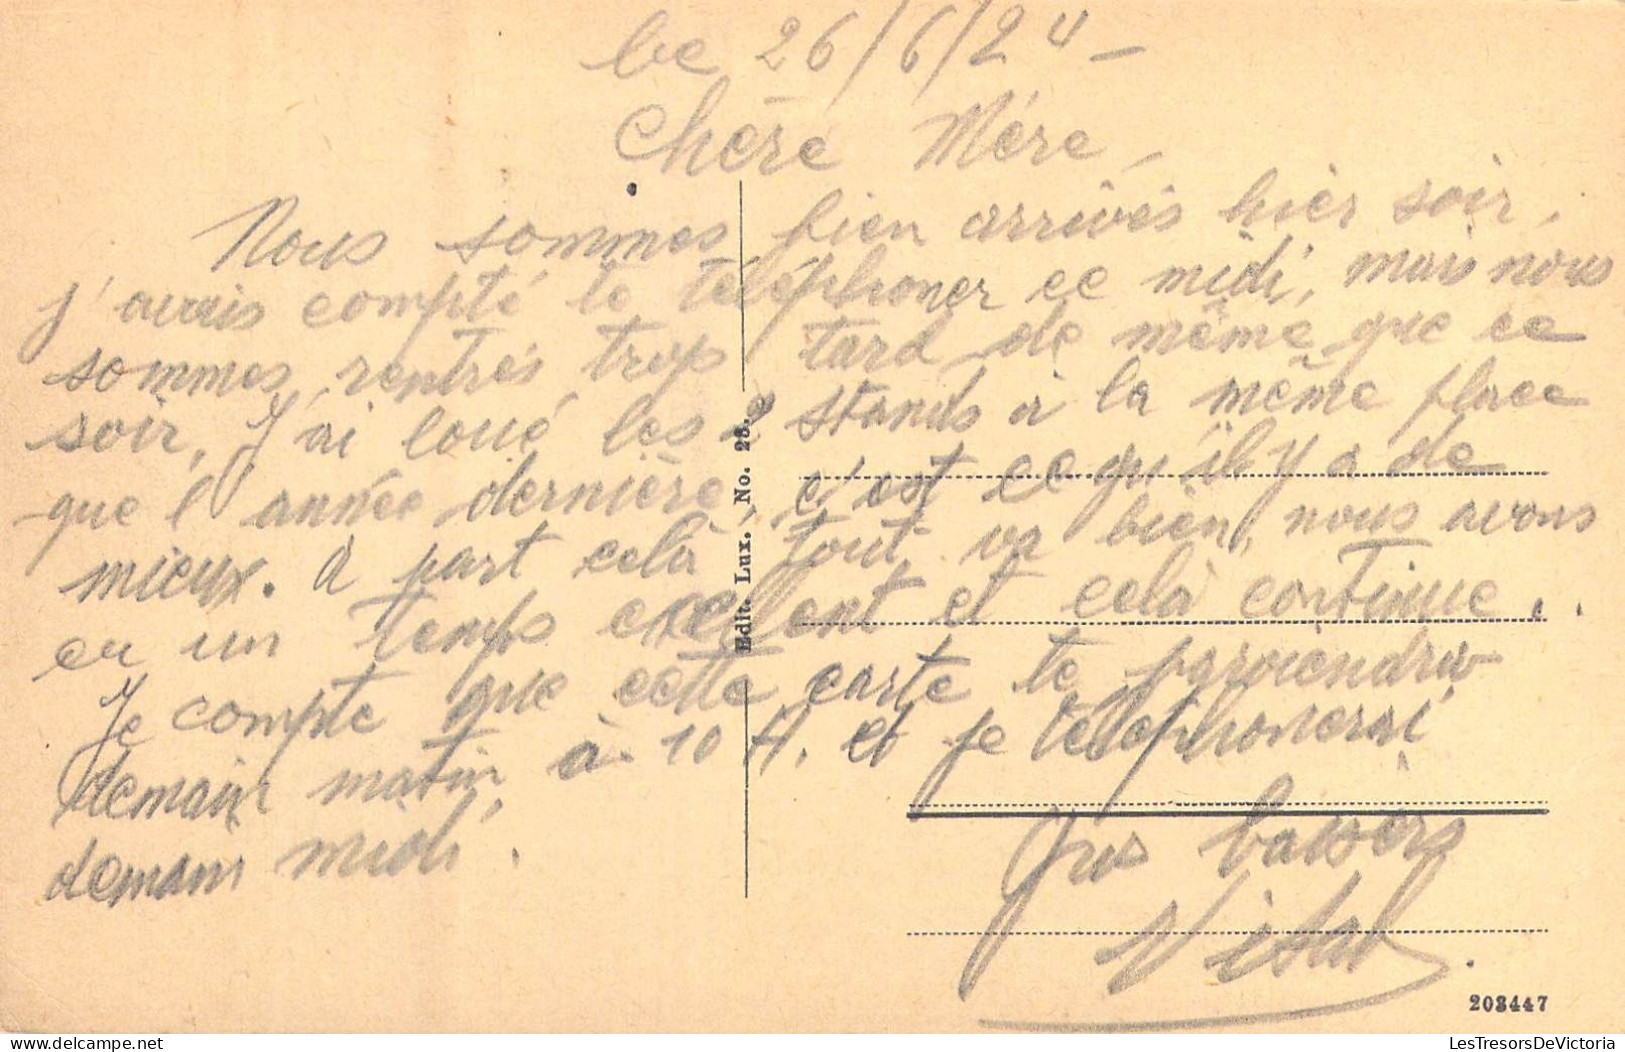 le 26/6/24 -
Chère Mère,
Nous sommes bien arrivés hier soir,
j'avais compté te téléphoner ce midi, mais nous
sommes rentrés trop tard de même que ce
soir, J'ai loué les 2 stands à la même place
que l'année dernière, c'est ce qu'il y a de
mieux. à part celà tout va bien, nous avons
eu un temps excellent et celà continue.
Je compte que cette carte te parviendra
demain matin à 10 H. et je téléphonerai
demain midi.
Gros baisers
Vital
Edit. Lux. No. 28.
203447
LesTresorsDeVictoria
delcampe.net